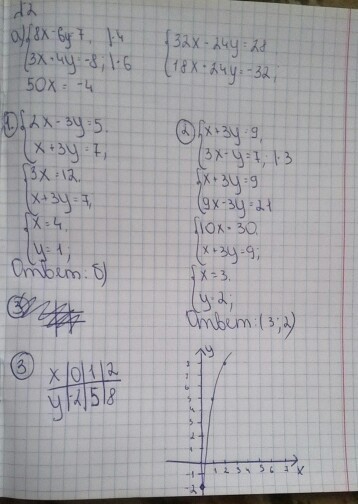 №2
а) {8x-6y=7, |·4   {32x-24y=28
{3x+4y=-8, |·6   {18x+24y=-32,
50x=-4
① {2x-3y=5.
{x+3y=7,
{3x=12.
{x+3y=7,
{x=4.
{y=1;
Ответ: б)
② {x+3y=9,
{3x-y=7, |·3
{x+3y=9
{9x-3y=21
{10x=30.
{x+3y=9;
{x=3.
{y=2;
Ответ: (3;2)
③ x|0|1|2
y|-2|5|8
y
8
7
6
5
4
3
2
1
1 2 3 4 5 6 7 x
-1
-2